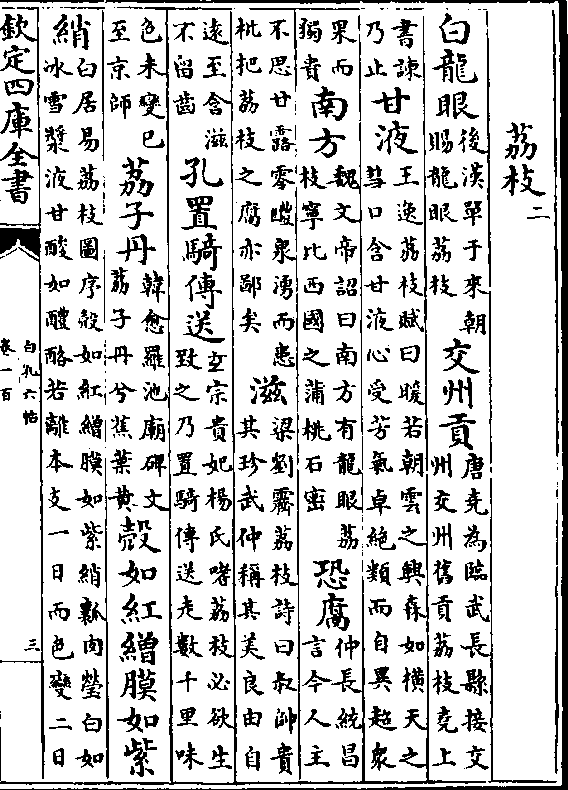 荔枝二
白龍眼後漢單于來朝賜龍眼荔枝交州貢唐堯為臨武長縣接交州交州舊貢荔枝堯上
書諫乃止甘液王逸荔枝賦曰暖若朝雲之興森如橫天之彗口含甘液心受芳氣卓絶類而自異超衆
果而獨貴南方魏文帝詔曰南方有龍眼荔枝寧比西國之蒲桃石密恐腐仲長統昌言今人主
不思甘露零醴泉湧而患枇杷荔枝之腐亦鄙矣滋梁劉霽荔枝詩曰叔師貴其珍武仲稱其美良由自
遠至含滋不留齒孔置騎傳送玄宗貴妃楊氏嗜荔枝必欲生致之乃置騎傳送走數千里味
色未變已至京師荔子丹韓愈羅池廟碑文荔子丹兮蕉葉黄殼如紅繒膜如紫
綃白居易荔枝圖序殼如紅繒膜如紫綃瓤肉瑩白如冰雪漿液甘酸如醴酪若離本支一日而色變二日
欽定四庫全書
白孔六帖
卷一百
三